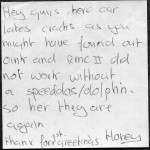 Hey guys, here our
lates cracks as you
might have found out
ount and BMC II did
not work without
a speeddos/dolphin.
so her they are
again
thanx for 1st greetings Honey